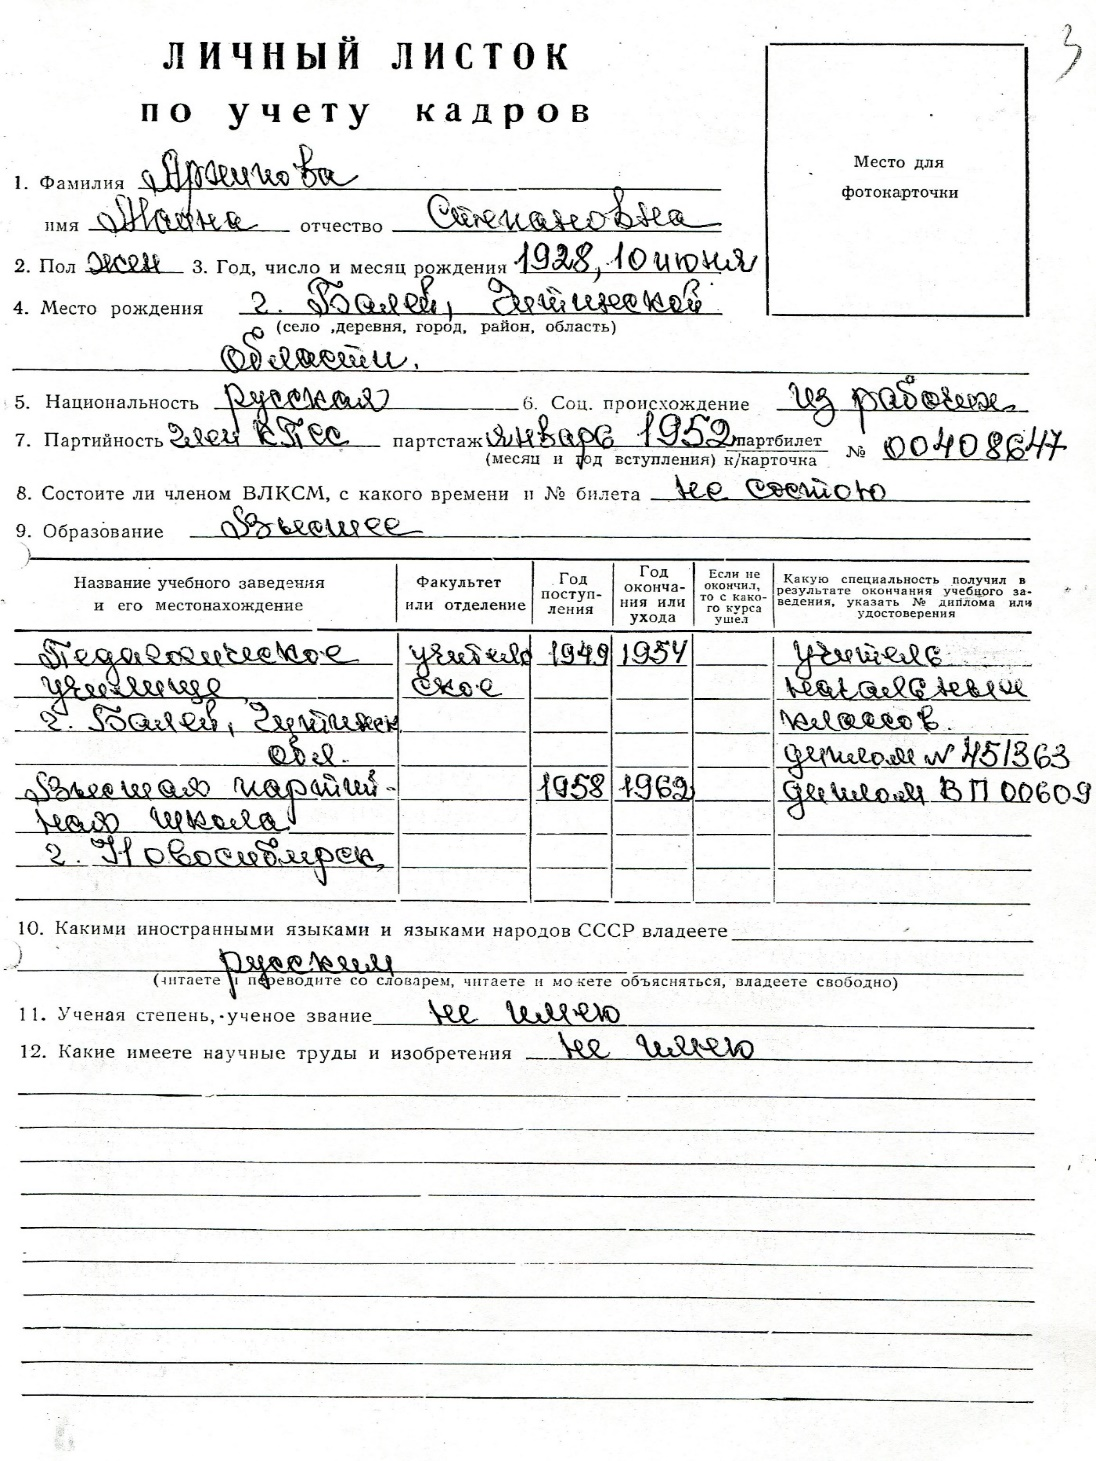 3
ЛИЧНЫЙ ЛИСТОК
по учету кадров
Место для
фотокарточки
1. Фамилия Архипова
имя отчество Степановна
2. Пол жен 3. Год, число и месяц рождения 1928, 10 июня
4. Место рождения г. Балей, Читинской
(село ,деревня, город, район, область)
области.
5. Национальность русская 6. Соц. происхождение из рабочих
7. Партийность член КПСС партстаж январь 1952 партбилет № 00408647
(месяц и год вступления) к/карточка
8. Состоите ли членом ВЛКСМ, с какого времени и № билета не состою
9. Образование Высшее
Название учебного заведения и его местонахождение
Факультет или отделение
Год поступ-
ления
Год
оконча-
ния или
ухода
Если не
окончил,
то с како-
го курса
ушел
Какую специальность получил в
результате окончания учебного за-
ведения, указать № диплома или
удостоверения
Педагогическое учитель 1949 1954 учитель
училище ское начальных
г. Балей, Читинск классов.
обл. диплом № 451363
Высшая партий- 1958 1962 диплом ВП 00609
ная школа
г. Новосибирск
10. Какими иностранными языками и языками народов СССР владеете
русским
(читаете и переводите со словарем, читаете и можете объясняться, владеете свободно)
11. Ученая степень, ученое звание не имею
12. Какие имеете научные труды и изобретения не имею